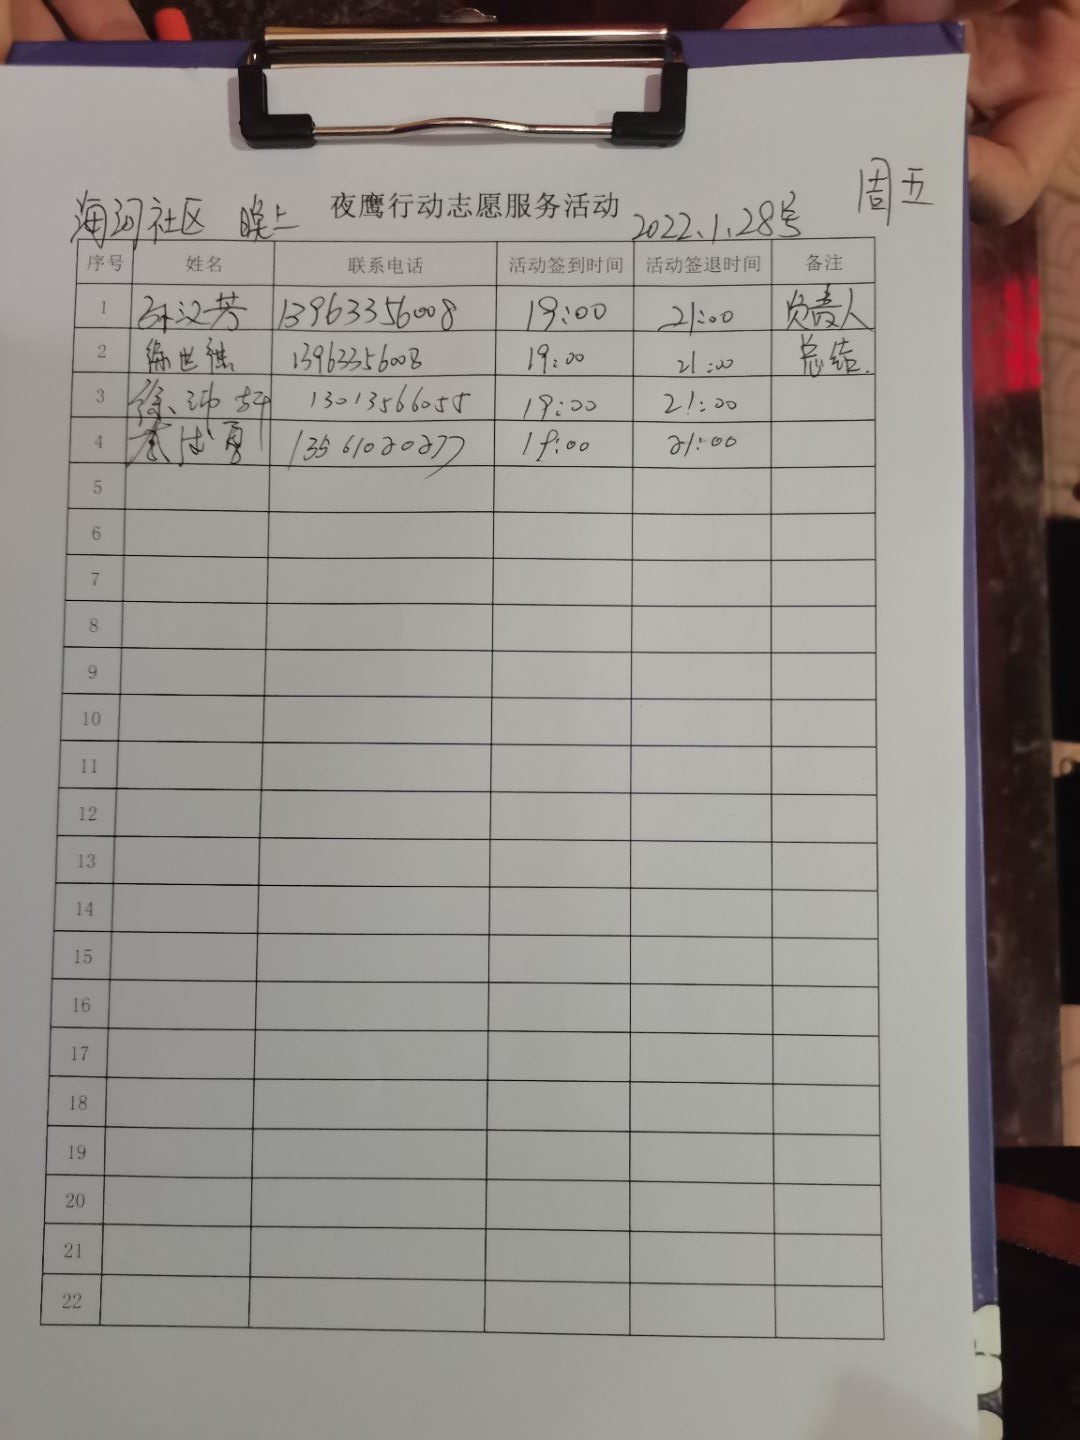 周五
海河社区 晚上 夜鹰行动志愿服务活动 2022.1.28号
序号 姓名 联系电话 活动签到时间 活动签退时间 备注
1 孙汉芳 13963356008 19:00 21:00 负责人
2 徐世继 13963356008 19:00 21:00 总结.
3 徐 13013566055 19:00 21:00
4 13561020277 19:00 21:00
5
6
7
8
9
10
11
12
13
14
15
16
17
18
19
20
21
22